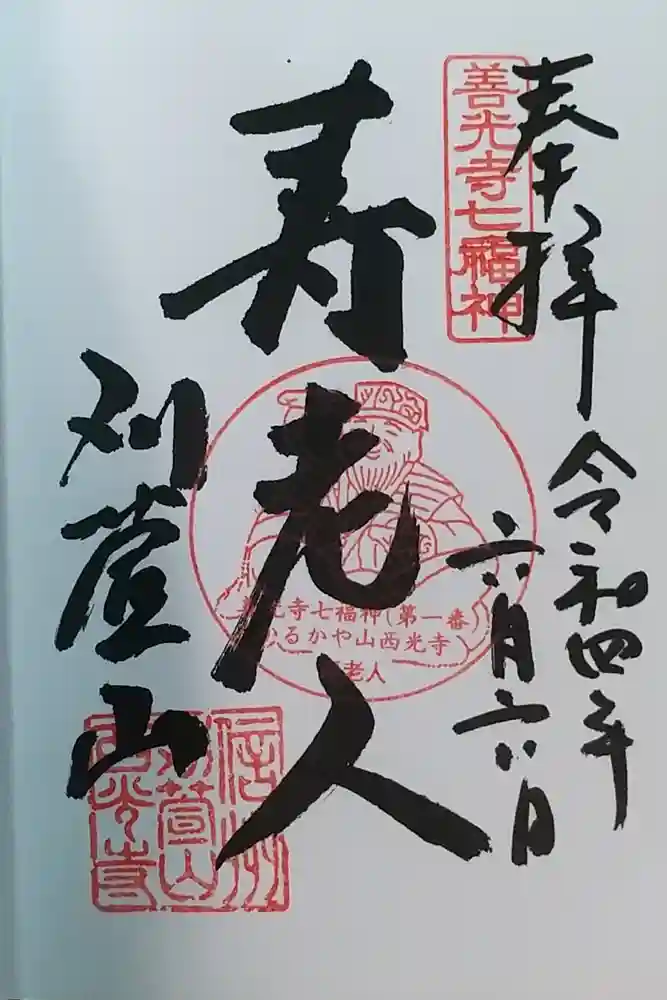 奉拝
善光寺七福神
令和四年
六月六日
寿老人
善光寺七福神(第一番
かるかや山西光寺)
寿老人
刈萱山
信州
刈萱山
西光寺